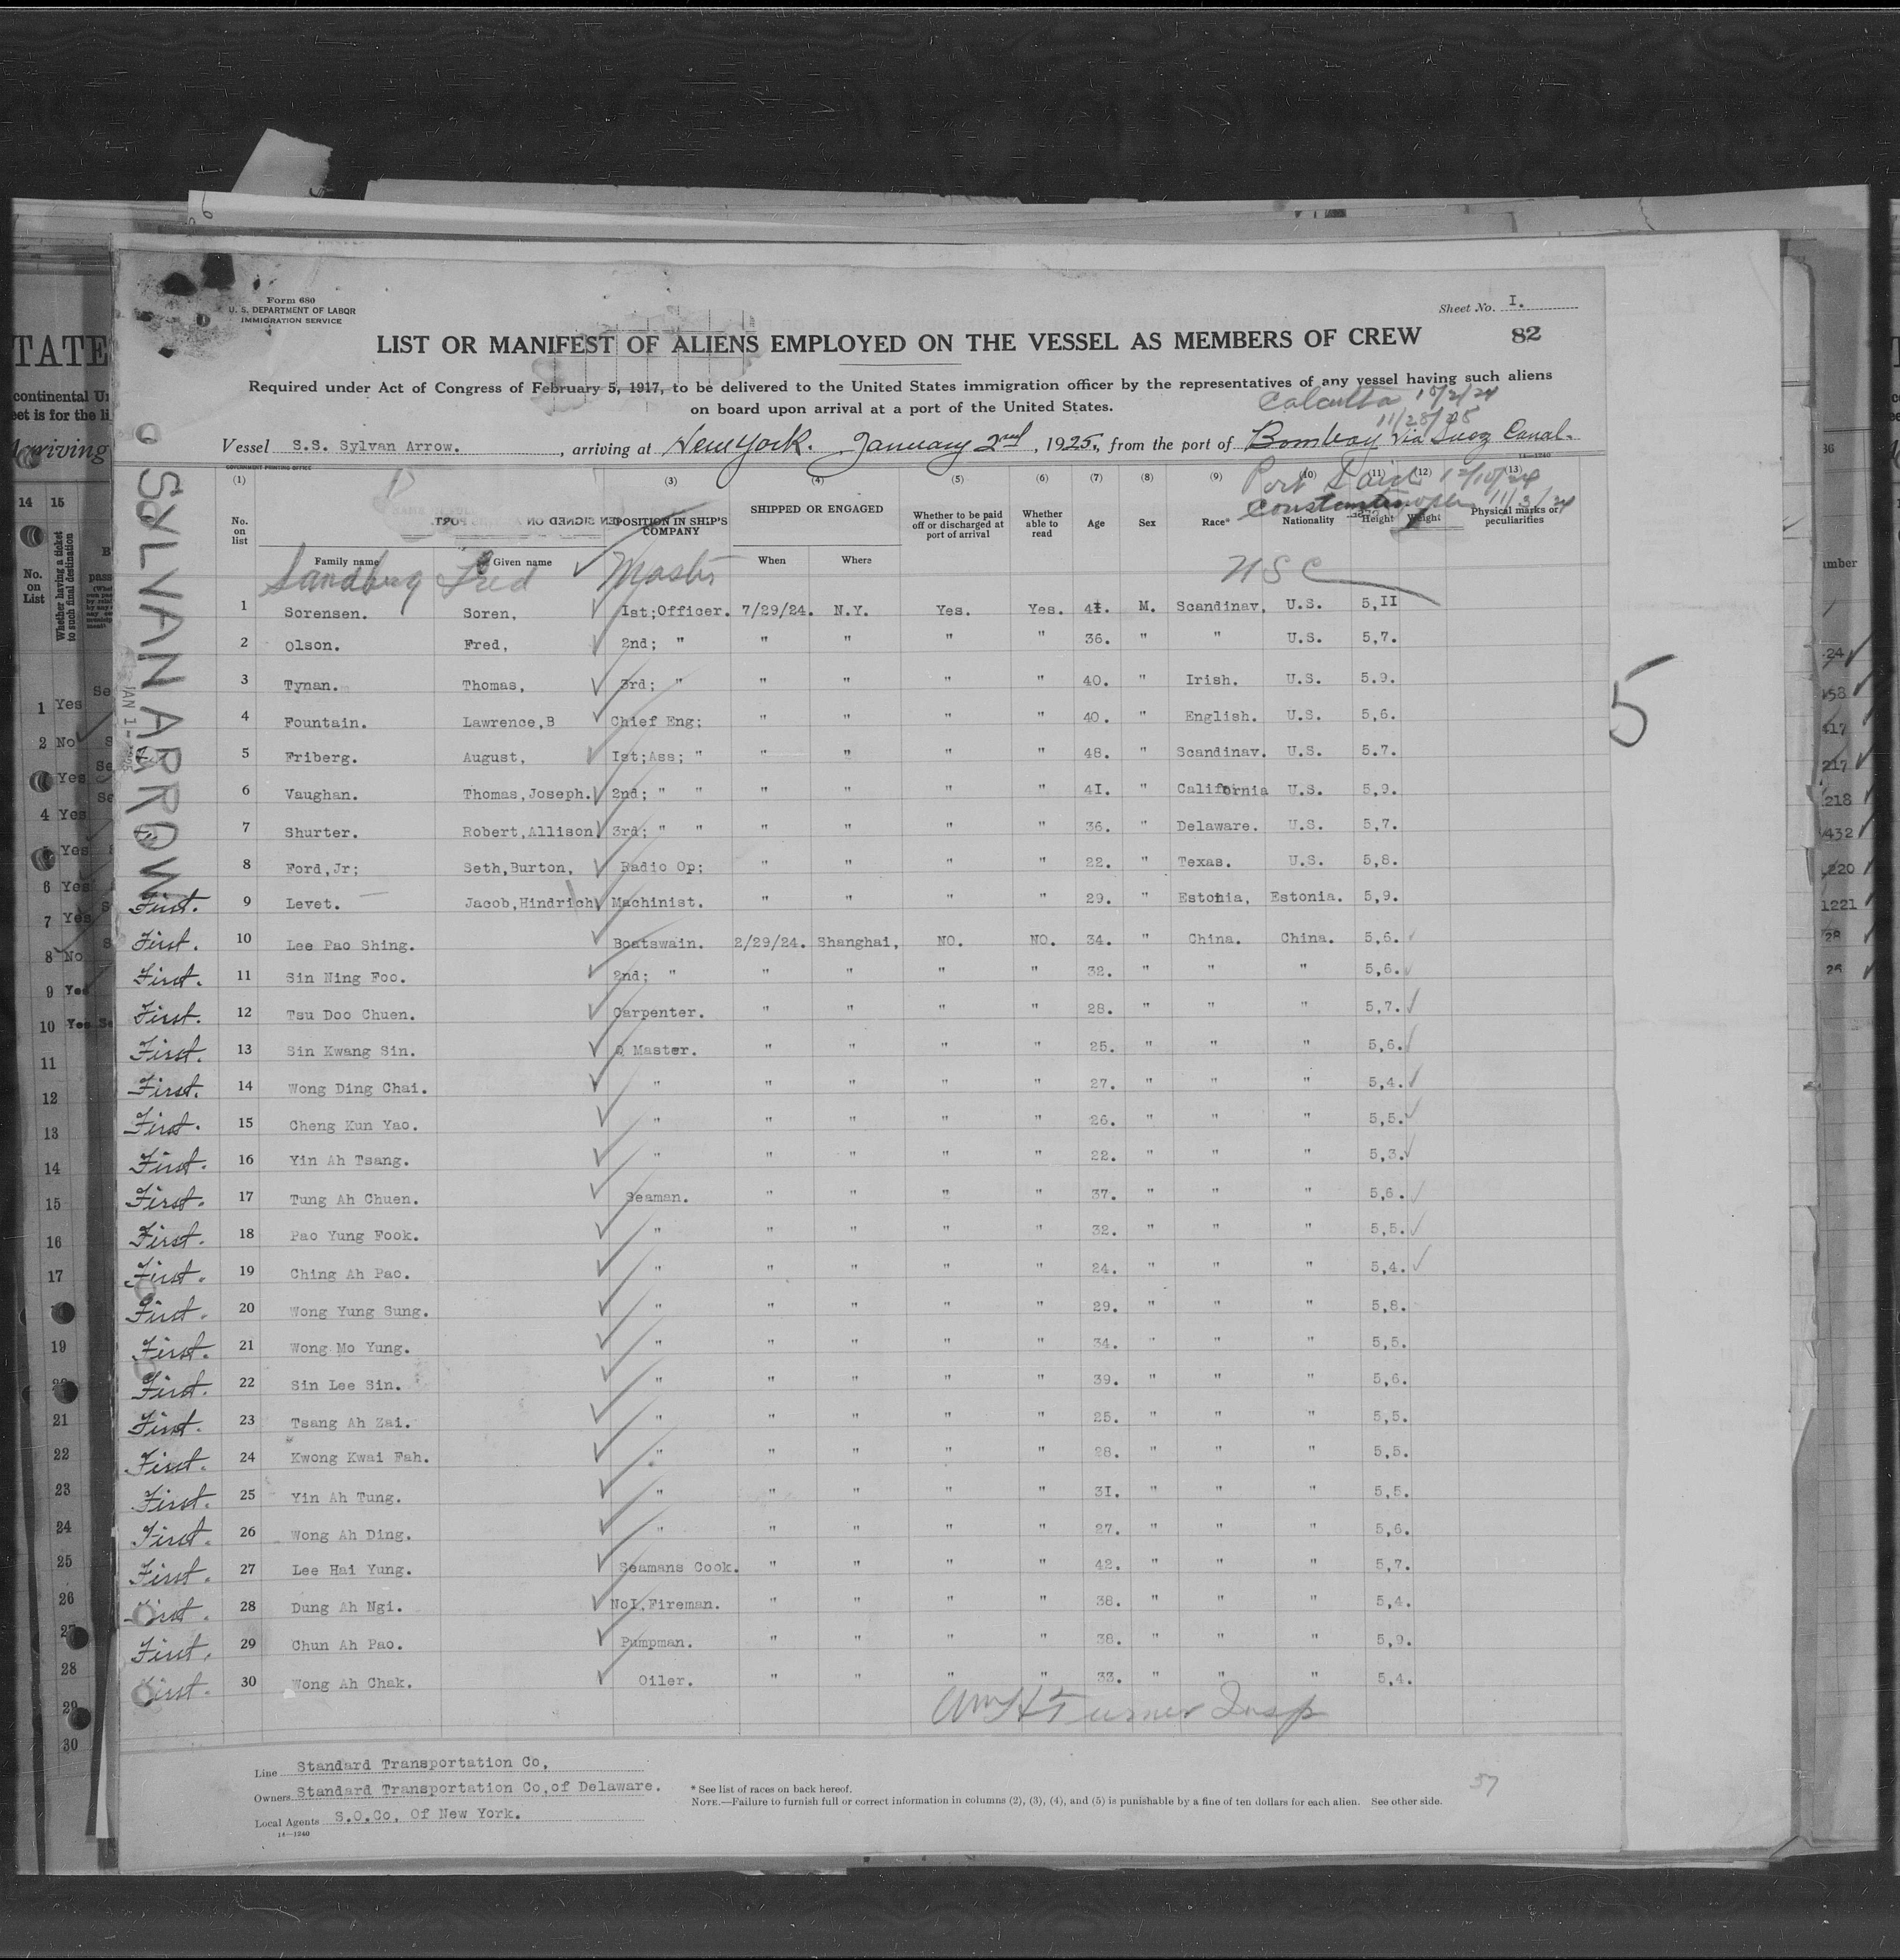 Form 680
U. S. DEPARTMENT OF LABOR
IMMIGRATION SERVICE
Sheet No. I.
LIST OR MANIFEST OF ALIENS EMPLOYED ON THE VESSEL AS MEMBERS OF CREW
82
Required under Act of Congress of February 5, 1917, to be delivered to the United States immigration officer by the representatives of any vessel having such aliens
on board upon arrival at a port of the United States.
Calcutta
Vessel S.S. Sylvan Arrow. , arriving at New York. January 2nd, 1925, from the port of Bombay via Suez Canal.
GOVERNMENT PRINTING OFFICE
14—1240
Port Said
Constantinople
SYLVAN ARROW
(1) (3) (4) (5) (6) (7) (8) (9) (10) (11) (12) (13)
No. on list Family name Given name POSITION IN SHIP'S COMPANY SHIPPED OR ENGAGED When Where Whether to be paid off or discharged at port of arrival Whether able to read Age Sex Race* Nationality Height Weight Physical marks or peculiarities
Sandberg Fred Master USC
1 Sorensen. Soren, Ist;Officer. 7/29/24. N.Y. Yes. Yes. 4I. M. Scandinav, U.S. 5,II
2 Olson. Fred, 2nd; " " " " " 36. " " U.S. 5,7.
3 Tynan. Thomas, 3rd; " " " " " 40. " Irish. U.S. 5.9.
4 Fountain. Lawrence,B Chief Eng; " " " " 40. " English. U.S. 5,6.
5 Friberg. August, Ist;Ass; " " " " " 48. " Scandinav. U.S. 5.7.
6 Vaughan. Thomas,Joseph. 2nd; " " " " " " 4I. " California U.S. 5,9.
7 Shurter. Robert,Allison. 3rd; " " " " " " 36. " Delaware. U.S. 5,7.
8 Ford,Jr; Seth,Burton, Radio Op; " " " " 22. " Texas. U.S. 5,8.
First. 9 Levet. Jacob,Hindrich. Machinist. " " " " 29. " Estonia, Estonia. 5,9.
First. 10 Lee Pao Shing. Boatswain. 2/29/24. Shanghai, NO. NO. 34. " China. China. 5,6.
First. 11 Sin Ning Foo. 2nd; " " " " " 32. " " " 5,6.
First. 12 Tsu Doo Chuen. Carpenter. " " " " 28. " " " 5,7.
First. 13 Sin Kwang Sin. Q Master. " " " " 25. " " " 5,6.
First. 14 Wong Ding Chai. " " " " " 27. " " " 5,4.
First. 15 Cheng Kun Yao. " " " " " 26. " " " 5,5.
First. 16 Yin Ah Tsang. " " " " " 22. " " " 5,3.
First. 17 Tung Ah Chuen. Seaman. " " " " 37. " " " 5,6.
First. 18 Pao Yung Fook. " " " " " 32. " " " 5,5.
First. 19 Ching Ah Pao. " " " " " 24. " " " 5,4.
First. 20 Wong Yung Sung. " " " " " 29. " " " 5,8.
First. 21 Wong Mo Yung. " " " " " 34. " " " 5,5.
First. 22 Sin Lee Sin. " " " " " 39. " " " 5,6.
First. 23 Tsang Ah Zai. " " " " " 25. " " " 5,5.
First. 24 Kwong Kwai Fah. " " " " " 28. " " " 5,5.
First. 25 Yin Ah Tung. " " " " " 3I. " " " 5,5.
First. 26 Wong Ah Ding. " " " " " 27. " " " 5,6.
First. 27 Lee Hai Yung. Seamans Cook. " " " " 42. " " " 5,7.
First. 28 Dung Ah Ngi. NoI,Fireman. " " " " 38. " " " 5,4.
First. 29 Chun Ah Pao. Pumpman. " " " " 38. " " " 5,9.
First. 30 Wong Ah Chak. Oiler. " " " " 33. " " " 5,4.
Wm H Turner Insp
5
Line Standard Transportation Co,
Owners Standard Transportation Co,of Delaware.
Local Agents S.O.Co, Of New York.
14—1240
* See list of races on back hereof.
NOTE.—Failure to furnish full or correct information in columns (2), (3), (4), and (5) is punishable by a fine of ten dollars for each alien. See other side.
37